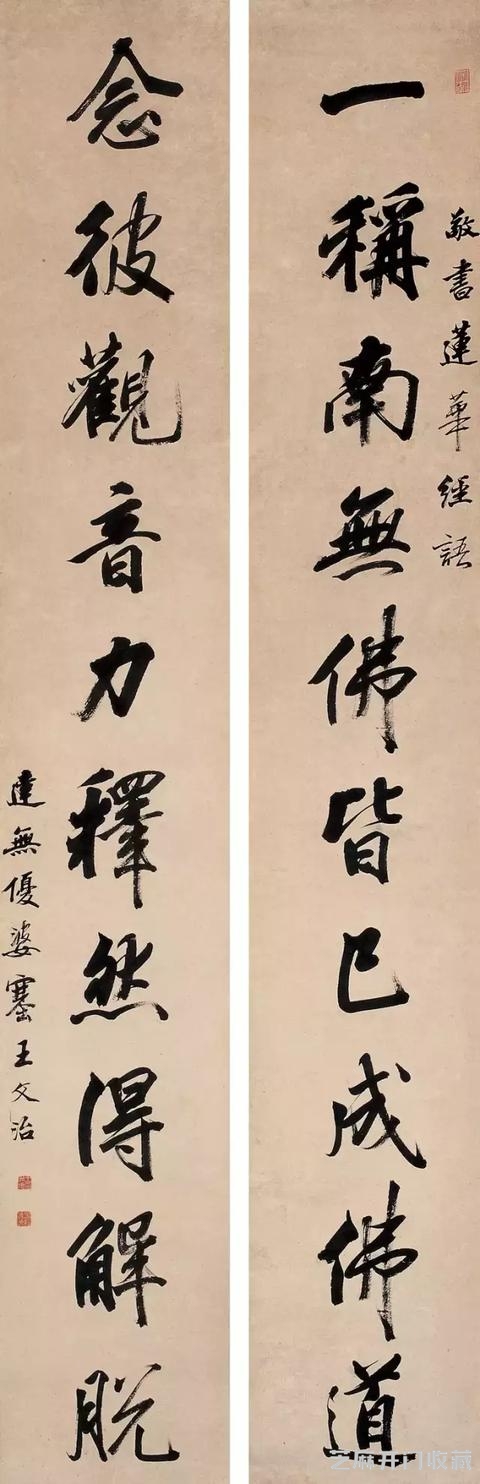 敬書蓮華經語
一稱南無佛皆已成佛道
念彼觀音力釋然得解脫
達無優婆塞王文治
芝麻开门收藏